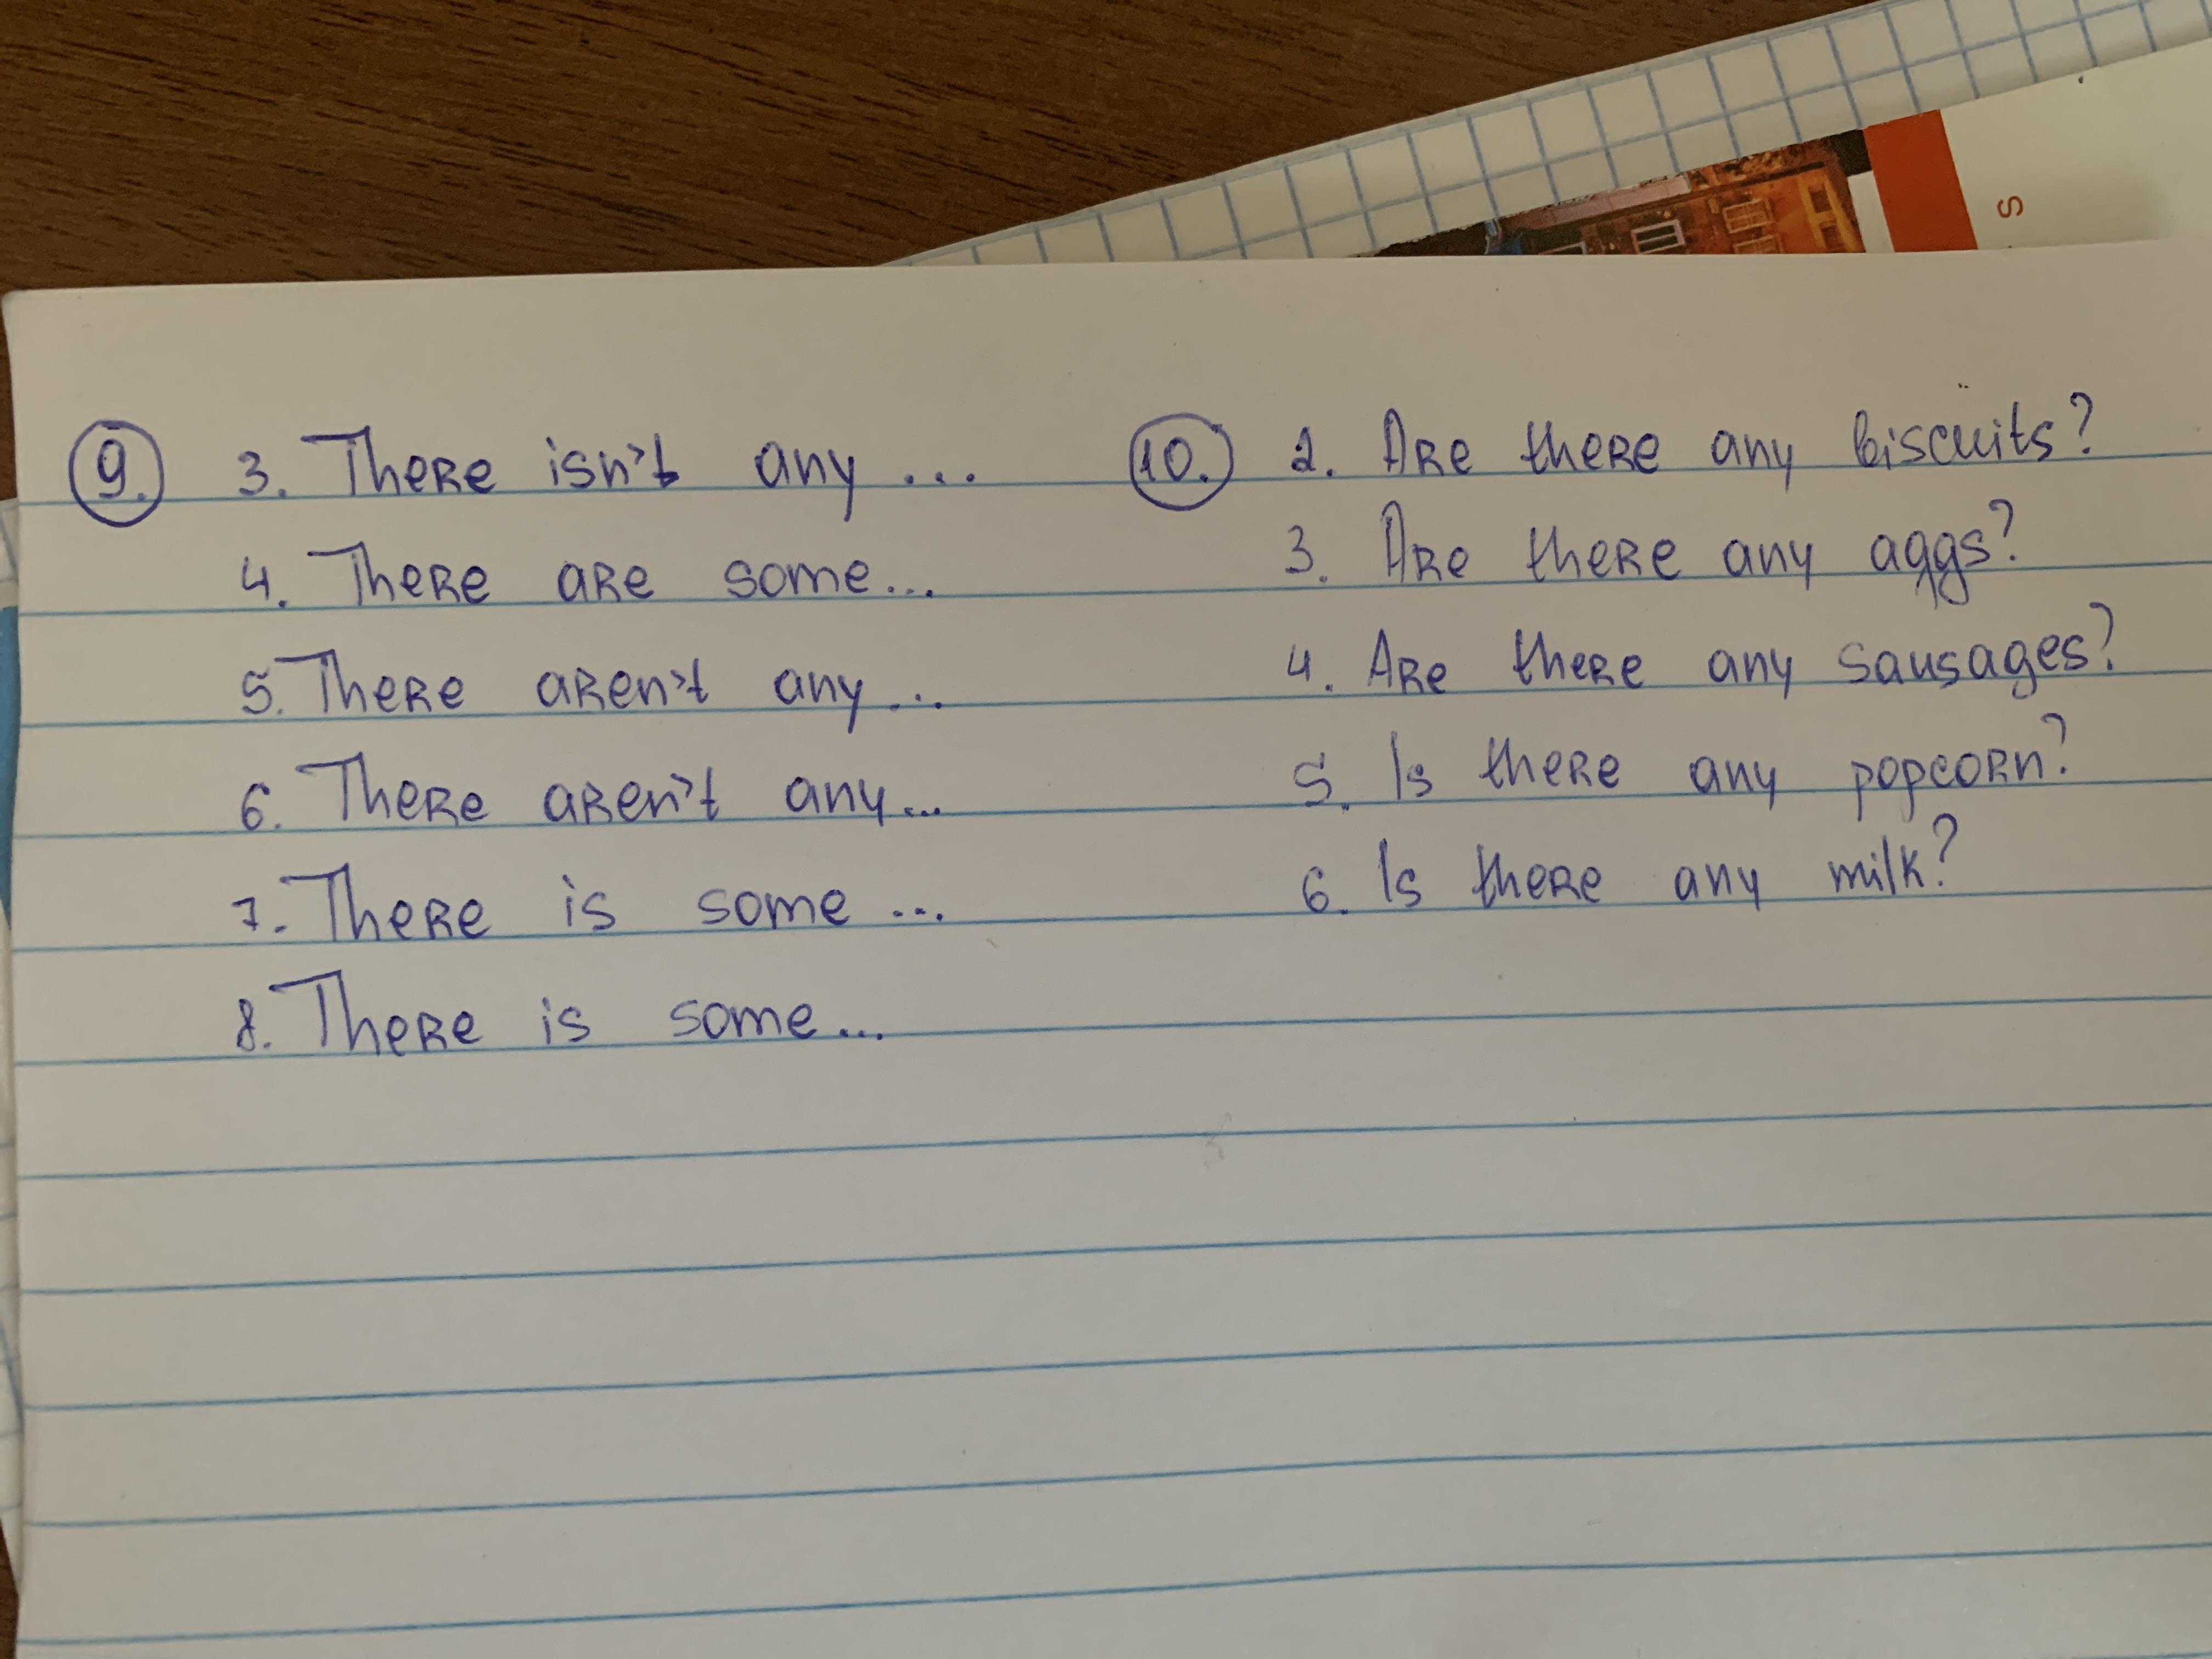 9. 3. There isn't any ...
4. There are some...
5. There aren't any...
6. There aren't any...
7. There is some ...
8. There is some...
10. 2. Are there any biscuits?
3. Are there any aggs?
4. Are there any sausages?
5. Is there any popcorn?
6. Is there any milk?
S